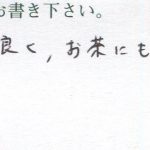 お書き下さい。
良く,お茶にも